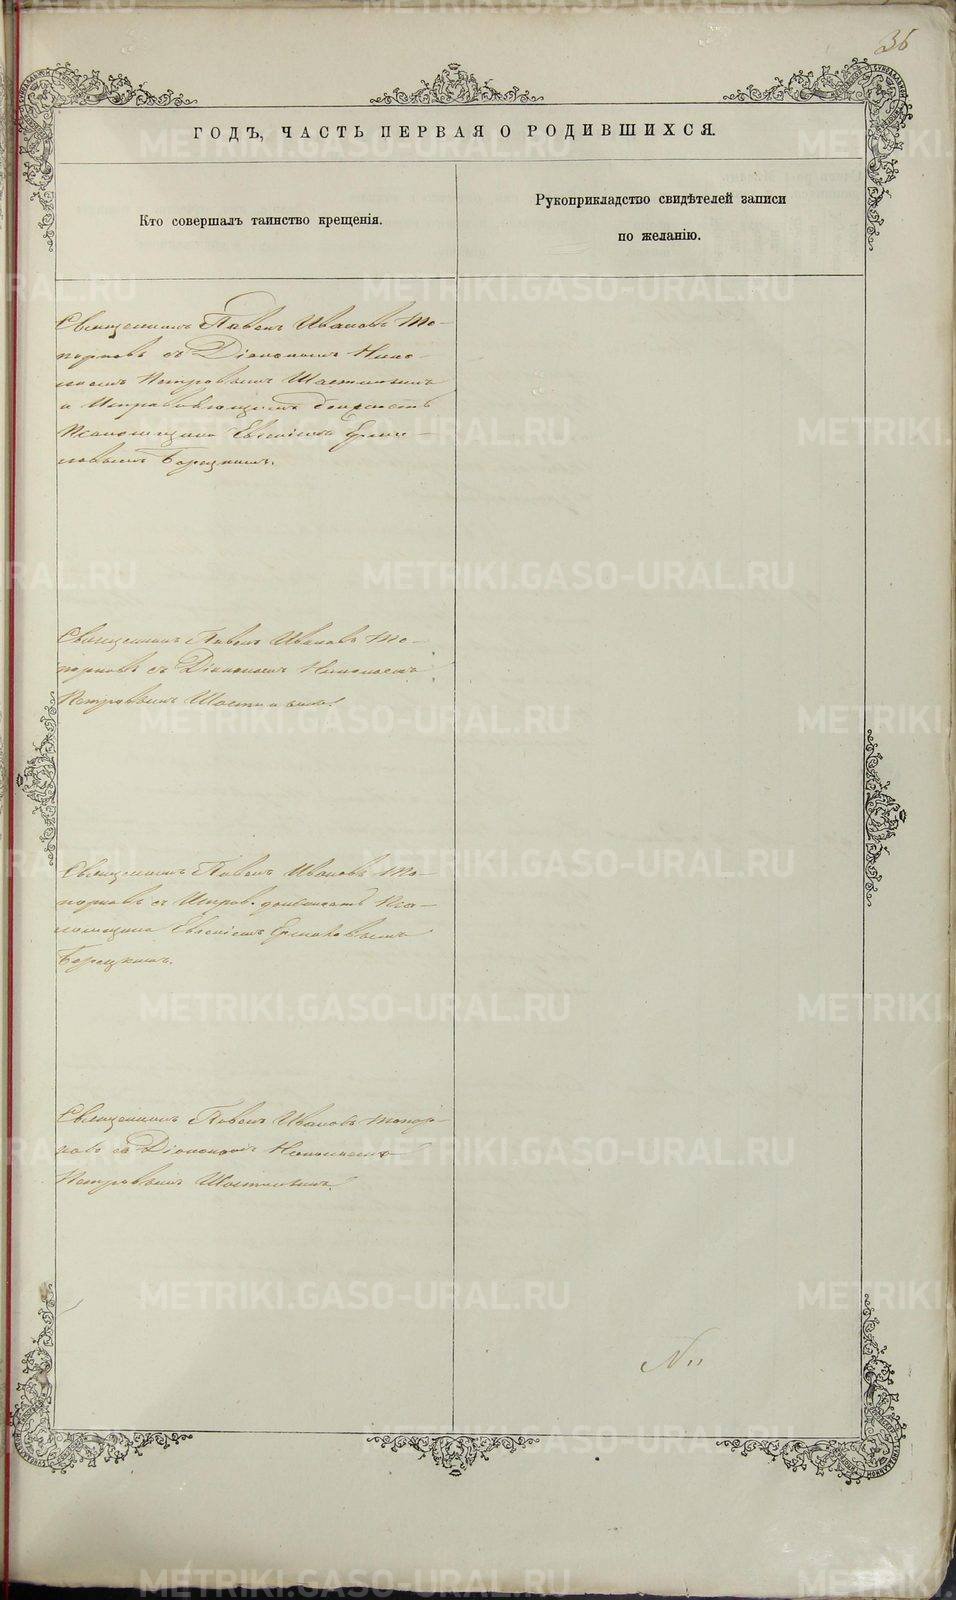 36
ГОДЪ, ЧАСТЬ ПЕРВАЯ О РОДИВШИХСЯ.
Кто совершалъ таинство крещенія.
Рукоприкладство свидѣтелей записи
по желанію.
Священникъ Павелъ Ивановъ То-
порковъ съ Діакономъ Нико-
лаемъ Петровымъ
и Исправляющимъ должность
Псаломщика Евгеніемъ Ермо-
лаевымъ Борецкимъ.
Священникъ Павелъ Ивановъ То-
порковъ съ Діакономъ Николаемъ
Петровымъ
Священникъ Павелъ Ивановъ То-
порковъ съ Исправ. должность Пса-
ломщика Евгеніемъ
Борецкимъ.
Священникъ Павелъ Ивановъ Топор-
ковъ съ Діакономъ Николаемъ
Петровымъ
METRIKI.GASO-URAL.RU